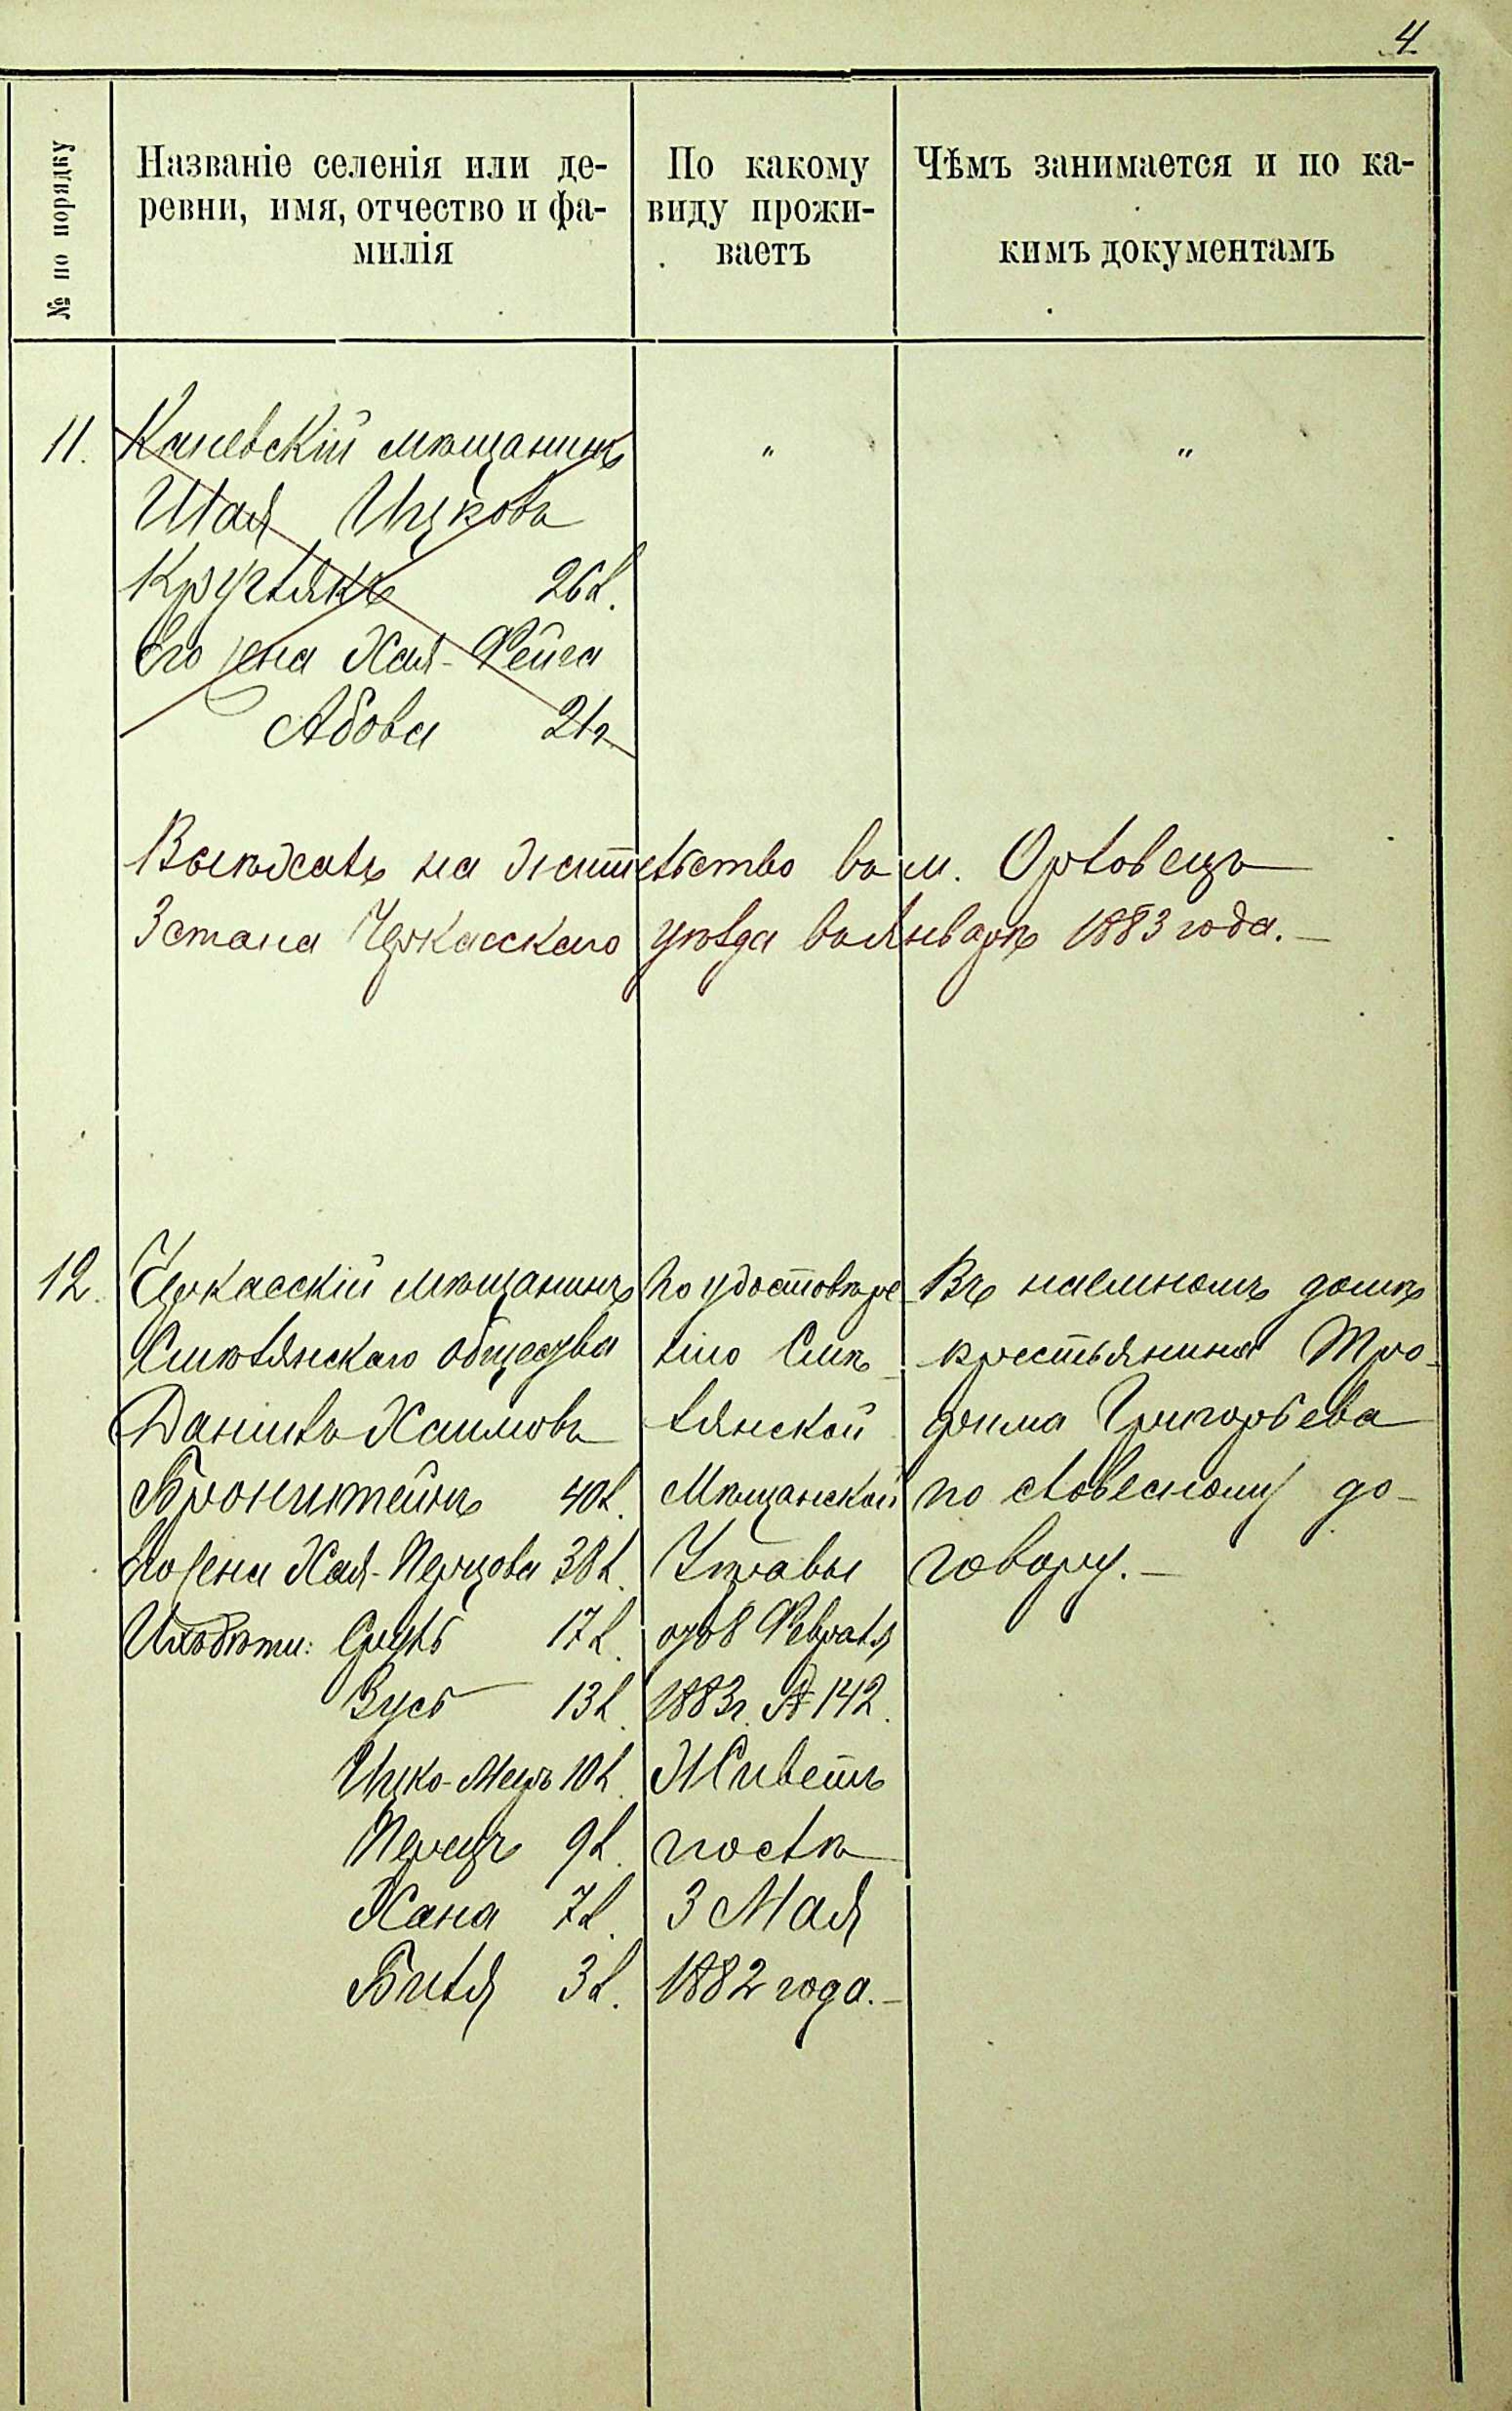 4
№ по порядку
Названіе селенія или де-
ревни, имя, отчество и фа-
милія
По какому
виду прожи-
ваетъ
Чѣмъ занимается и по ка-
кимъ документамъ
11.
Каневскій мѣщанинъ
Шая Ицковъ
Круглякъ 26 л.
Его жена Хая-Фейга
Абова 21 г.
"
"
Выѣхалъ на жительство въ м. Орловецъ
3 стана Черкасскаго уѣзда въ Январѣ 1883 года.—
12.
Черкасскій мѣщанинъ
Смѣлянскаго общества
Данилъ Хаимовъ
Бронштейнъ 40 л.
Его жена Хая-Перцова 38 л.
Ихъ дѣти: Сруль 17 л.
Зусь 13 л.
Ицко-Меер 10 л.
Перецъ 9 л.
Хана 7 л.
Биля 3 л.
По удостовѣре-
нію Смѣ-
лянской
Мѣщанской
Управы
отъ 8 Февраля
1883 г. № 142.
Живетъ
послѣ
3 Мая
1882 года.—
Въ наемномъ домѣ
крестьянина Тро-
фима Григорьева
по словесному до-
говору.—